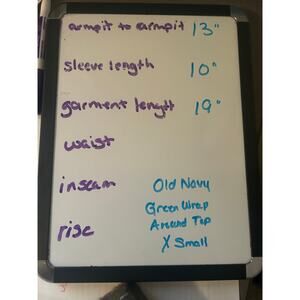 armpit to armpit 13"
sleeve length 10"
garment length 19"
waist
inseam Old Navy
Green Wrap
Around Top
rise X Small